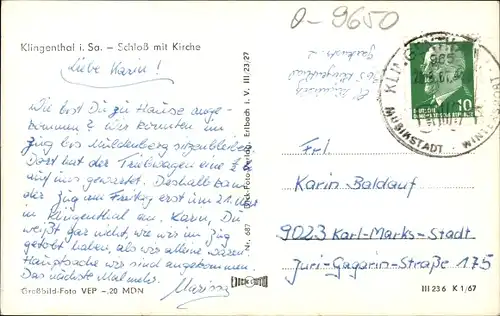 O-9650
Klingenthal i. Sa. – Schloß mit Kirche
Liebe Karin!
Wie bist Du zu Hause ange-
kommen? Wir konnten im
Zug bis Muldenberg sitzenbleiben.
Dort hat der Triebwagen eine
auf uns gewartet. Deshalb kam
der Zug am Freitag erst um 21 Uhr
in Klingenthal an. Karin, Du
weißt gar nicht, wie wir im Zug
getobt haben, als wir alleine waren.
Hauptsache wir sind angekommen.
Das nächste Mal mehr.
Großbild-Foto VEP -.20 MDN
Nr. 687 Erlbach i. V. III/23/27
965 Klingenthal
10
MUSIKSTADT
Frl
Karin Baldauf
9023 Karl-Marx-Stadt
Juri-Gagarin-Straße 175
III 23 6 K 1/67